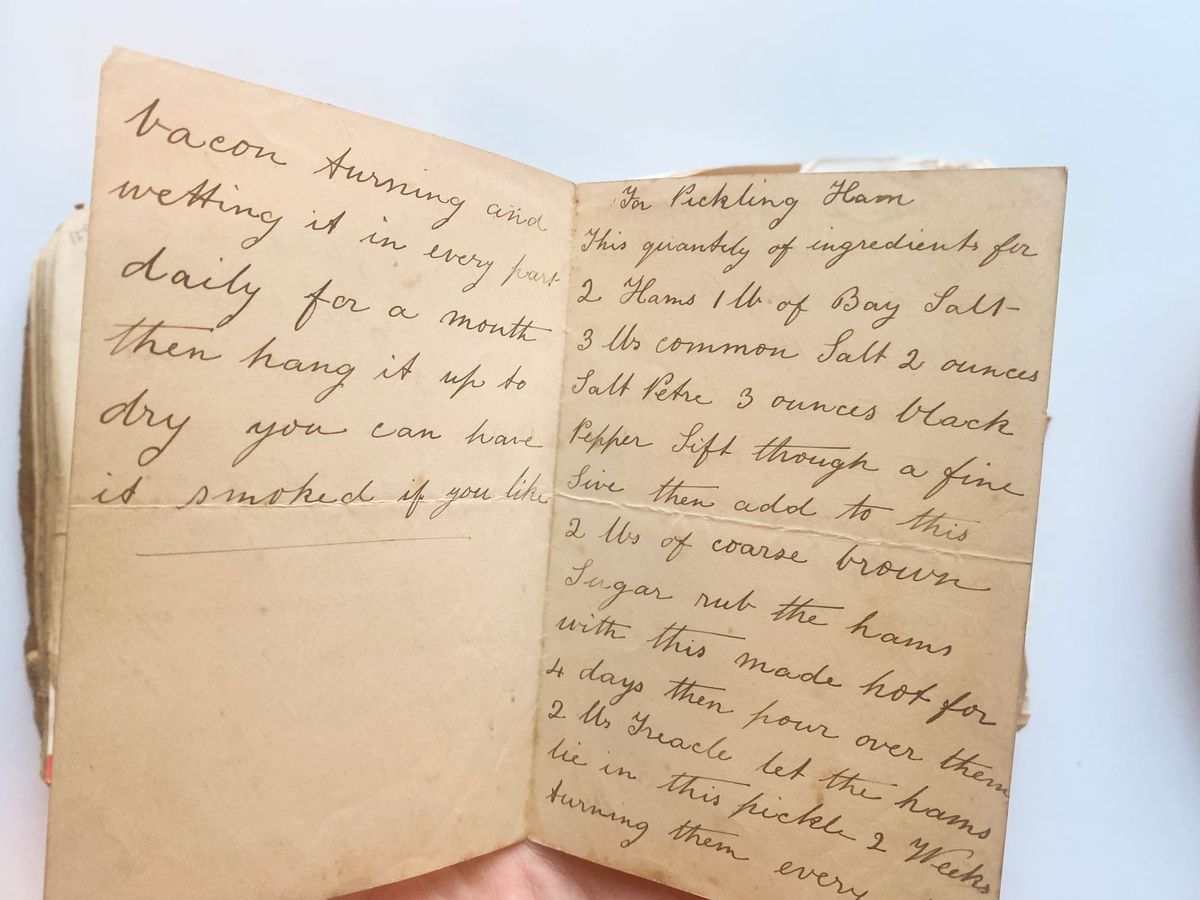 bacon turning and
wetting it in every part
daily for a month
then hang it up to
dry you can have
it smoked if you like
For Pickling Ham
This quantely of ingredients for
2 Hams 1 lb of Bay Salt-
3 lbs common Salt 2 ounces
Salt Petre 3 ounces black
Pepper Sift through a fine
Sive then add to this
2 lbs of coarse brown
Sugar rub the hams
with this made hot for
4 days then pour over them
2 lbs Treacle let the hams
lie in this pickle 2 Weeks
turning them every